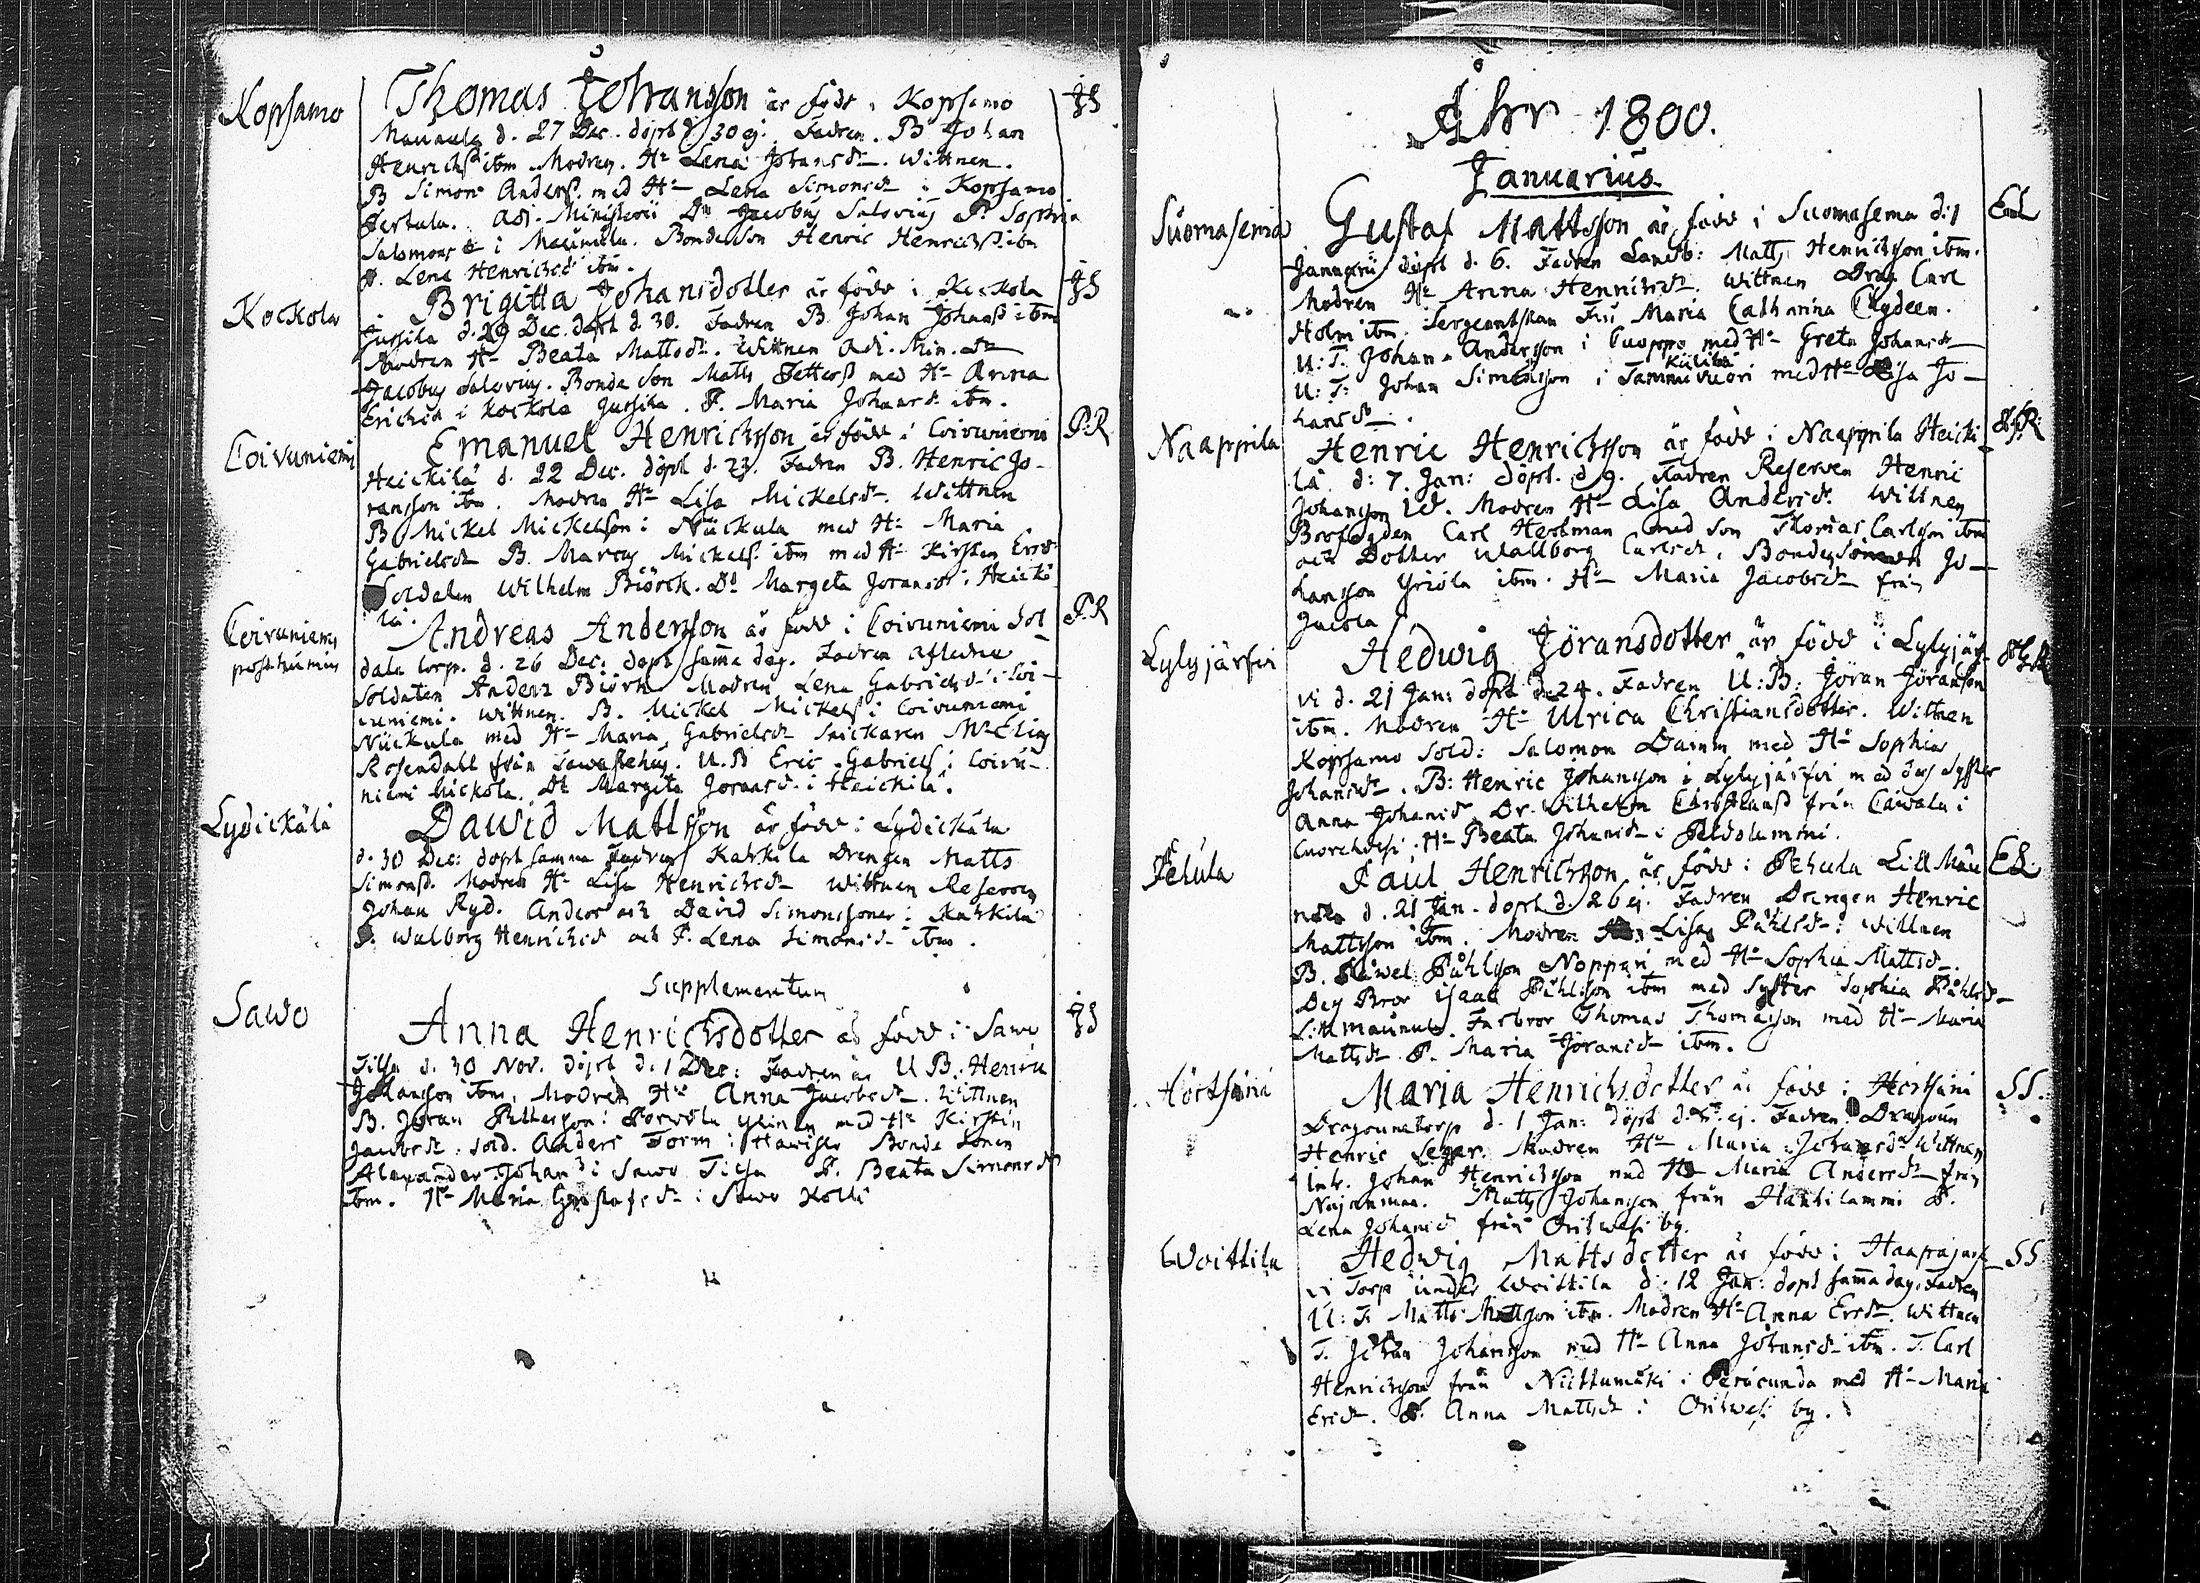 Kopsamo
Thomas Johansson är född i Kopsamo JS
Maunula d. 27 Dec. döpt d 30 ej. Fadren. B Johan
Henrichss ibm Modren. Hu Lena Johansdr. Wittnen.
B Simon Anderss. med Hu Lena Simonsdr i Kopsamo
Jertula. Adj. Ministerii Dn Jacobus Salovius P. Sophia
Salomonsdr i Maunula. Bonde Son Henric Henrichss. ibm
P. Lena Henrichsdr ibm.
Kockola
Brigitta Johansdotter är född i Kockola JS
Jussila d. 29 Dec. döpt d. 30. Fadren B. Johan Johanss ibm
Modren Hu Beata Mattsdr. Wittnen Adj. Min. Dn
Jacobus Salovius. Bonde Son Matts Petterss med Hu Anna
Erichsd i Kockola Jussila. P. Maria Johansdr ibm.
Coivuniemi
Emanuel Henrichsson är född i Coivuniemi P.R
Heickilä d. 22 Dec. döpt d. 23. Fadren B. Henric Jö-
ransson ibm. Modren Hu Lisa Mickelsdr. Wittnen
B Mickel Mickelson i Nückula med Hu Maria
Gabrielsdr B. Marcus Mickelss. ibm med Hu Kirstin Ersdr
Soldaten Wilhelm Biörck. Dr Margeta Joransdr i Heicki
lä.
Coivuniemi
posthumus
Andreas Andersson är född i Coivuniemi Sol- P.R
data torp. d. 26 Dec. döpt samma dag. Fadren afledne
Soldaten Anders Biörk Modren Lena Gabrielsdr i Coi-
vuniemi. Wittnen. B. Mickel Mickelss i Coivuniemi
Nückula med Hu Maria Gabrielsdr Snickaren Mr Elias
Rosendall från Tawastehus. U.B Eric Gabrielss i Coivu-
niemi Nickola. Dr Margeta Joransd. i Heickilä.
Lydickälä
Dawid Mattsson är född i Lydickälä
d. 30 Dec: döpt samma Fadren Karkila Drengen Matts
Simonss. Modren Hu Lisa Henrichsdr Wittnen Reserven
Johan Ryd. Anders och David Simonssoner i Karkila
P. Walborg Henrichsd och P. Lena Simonsdr ibm.
Supplementum
Sawo
Anna Henrichsdotter är född i Sawo JS
Tilsa d. 30 Nov. döpt d. 1 Dec: Fadren är U B. Henric
Johansson ibm, Modren Hu Anna Jacobsdr. Wittnen
B. Jöran Pettersson i Porvola med Hu Kirstin
Jacobsdr. Sold. Anders Form i Bonde Sonen
Alexander Johanss i Sawo Tilsa P. Beata Simonsdr
ibm. Hu Maria Gustafsdr i Sawo Kolli
Åhr 1800.
Januarius
Suomasema
Gustaf Mattsson är född i Suomasema d: 1 EL
Januarii döpt d. 6. Fadren Landb: Matts Henrichsson ibm.
Modren Hu Anna Henrichsdr. Wittnen Drag Carl
Holm ibm. Sergeantskan Fru Maria Catharina Clydeen.
U: T. Johan Andersson i Cuoppo med Hu Greta Johansdr
U: T: Johan Simonsson i Tammivuori med Hu Lisa Jo-
hansdr.
Naappila
Henric Henrichsson är född i Naappila Heicki HJR.
lä d: 7. Jan: döpt. d 9. Fadren Reserven Henric
Johansson Wd. Modren Hu Lisa Andersdr. Wittnen
Brofogden Carl Hertman med Son Thomas Carlsson ibm
och Dotter Wallborg Carlsdr, Bonde Sonen Jo-
hansson Yriölä ibm. Hu Maria Jacobsdr från
Jutola
Lylyjärfvi
Hedwig Jöransdotter är född i Lylyjärf- HGR
vi d. 21 Jan: döpt d: 24. Fadren U: B: Jöran Jöransson
ibm. Modren Hu Ulrica Christiansdotter. Wittnen
Kopsamo Sold: Salomon Damm med Hu Sophia
Johansdr. B: Henric Johansson i Lylyjärfvi med dess Syster
Anna Johansd. Dr. Wilhelm Christianss från Cawala i
Cuorehwesi. Hu Beata Johansdr i Peldolammi.
Pelula
Paul Henrichsson är född i Pehula Lill Mau EL.
nula d. 21 Jan. döpt d. 26 ej. Fadren Drengen Henric
Mattsson ibm. Modren Lisa Påhlsdr: Wittnen
B. Pawel Påhlsson Noppari med Hu Sophia Mattsdr.
Dess Bror Isaac Påhlsson ibm med Syster Sophia Påhlsdr
Lill Maunula. Farbror Thomas Thomasson med Hu Maria
Mattsdr. P. Maria Jöransdr ibm.
Hörtsänä
Maria Henrichsdotter är född i Hörtsänä SS.
Dragounetorp d. 1 Jan: döpt d. ej. Fadren. Dragoun
Henric Seger. Modren Hu Maria Johansdr Wittnen
Inh. Johan Henrichsson med Hu Maria Andersdr från
Najanmaa. Matts Johansson från Hankilammi P.
Lena Johansd från Oritwesi by.
Woittila
Hedwig Mattsdotter är född i Haapajärf SS
vi Torp under Woittila d: 12 Jan: döpt samma dag. Fadren
U: T Matts Mattsson ibm. Modren Hu Anna Ersdr. Wittnen
T. Jöran Johansson med Hu Anna Johansdr ibm. T. Carl
Henrichsson från Niittumäki i Peräcunda med Hu Maria
Ersdr. P. Anna Mattsdr i Oritwesi by.